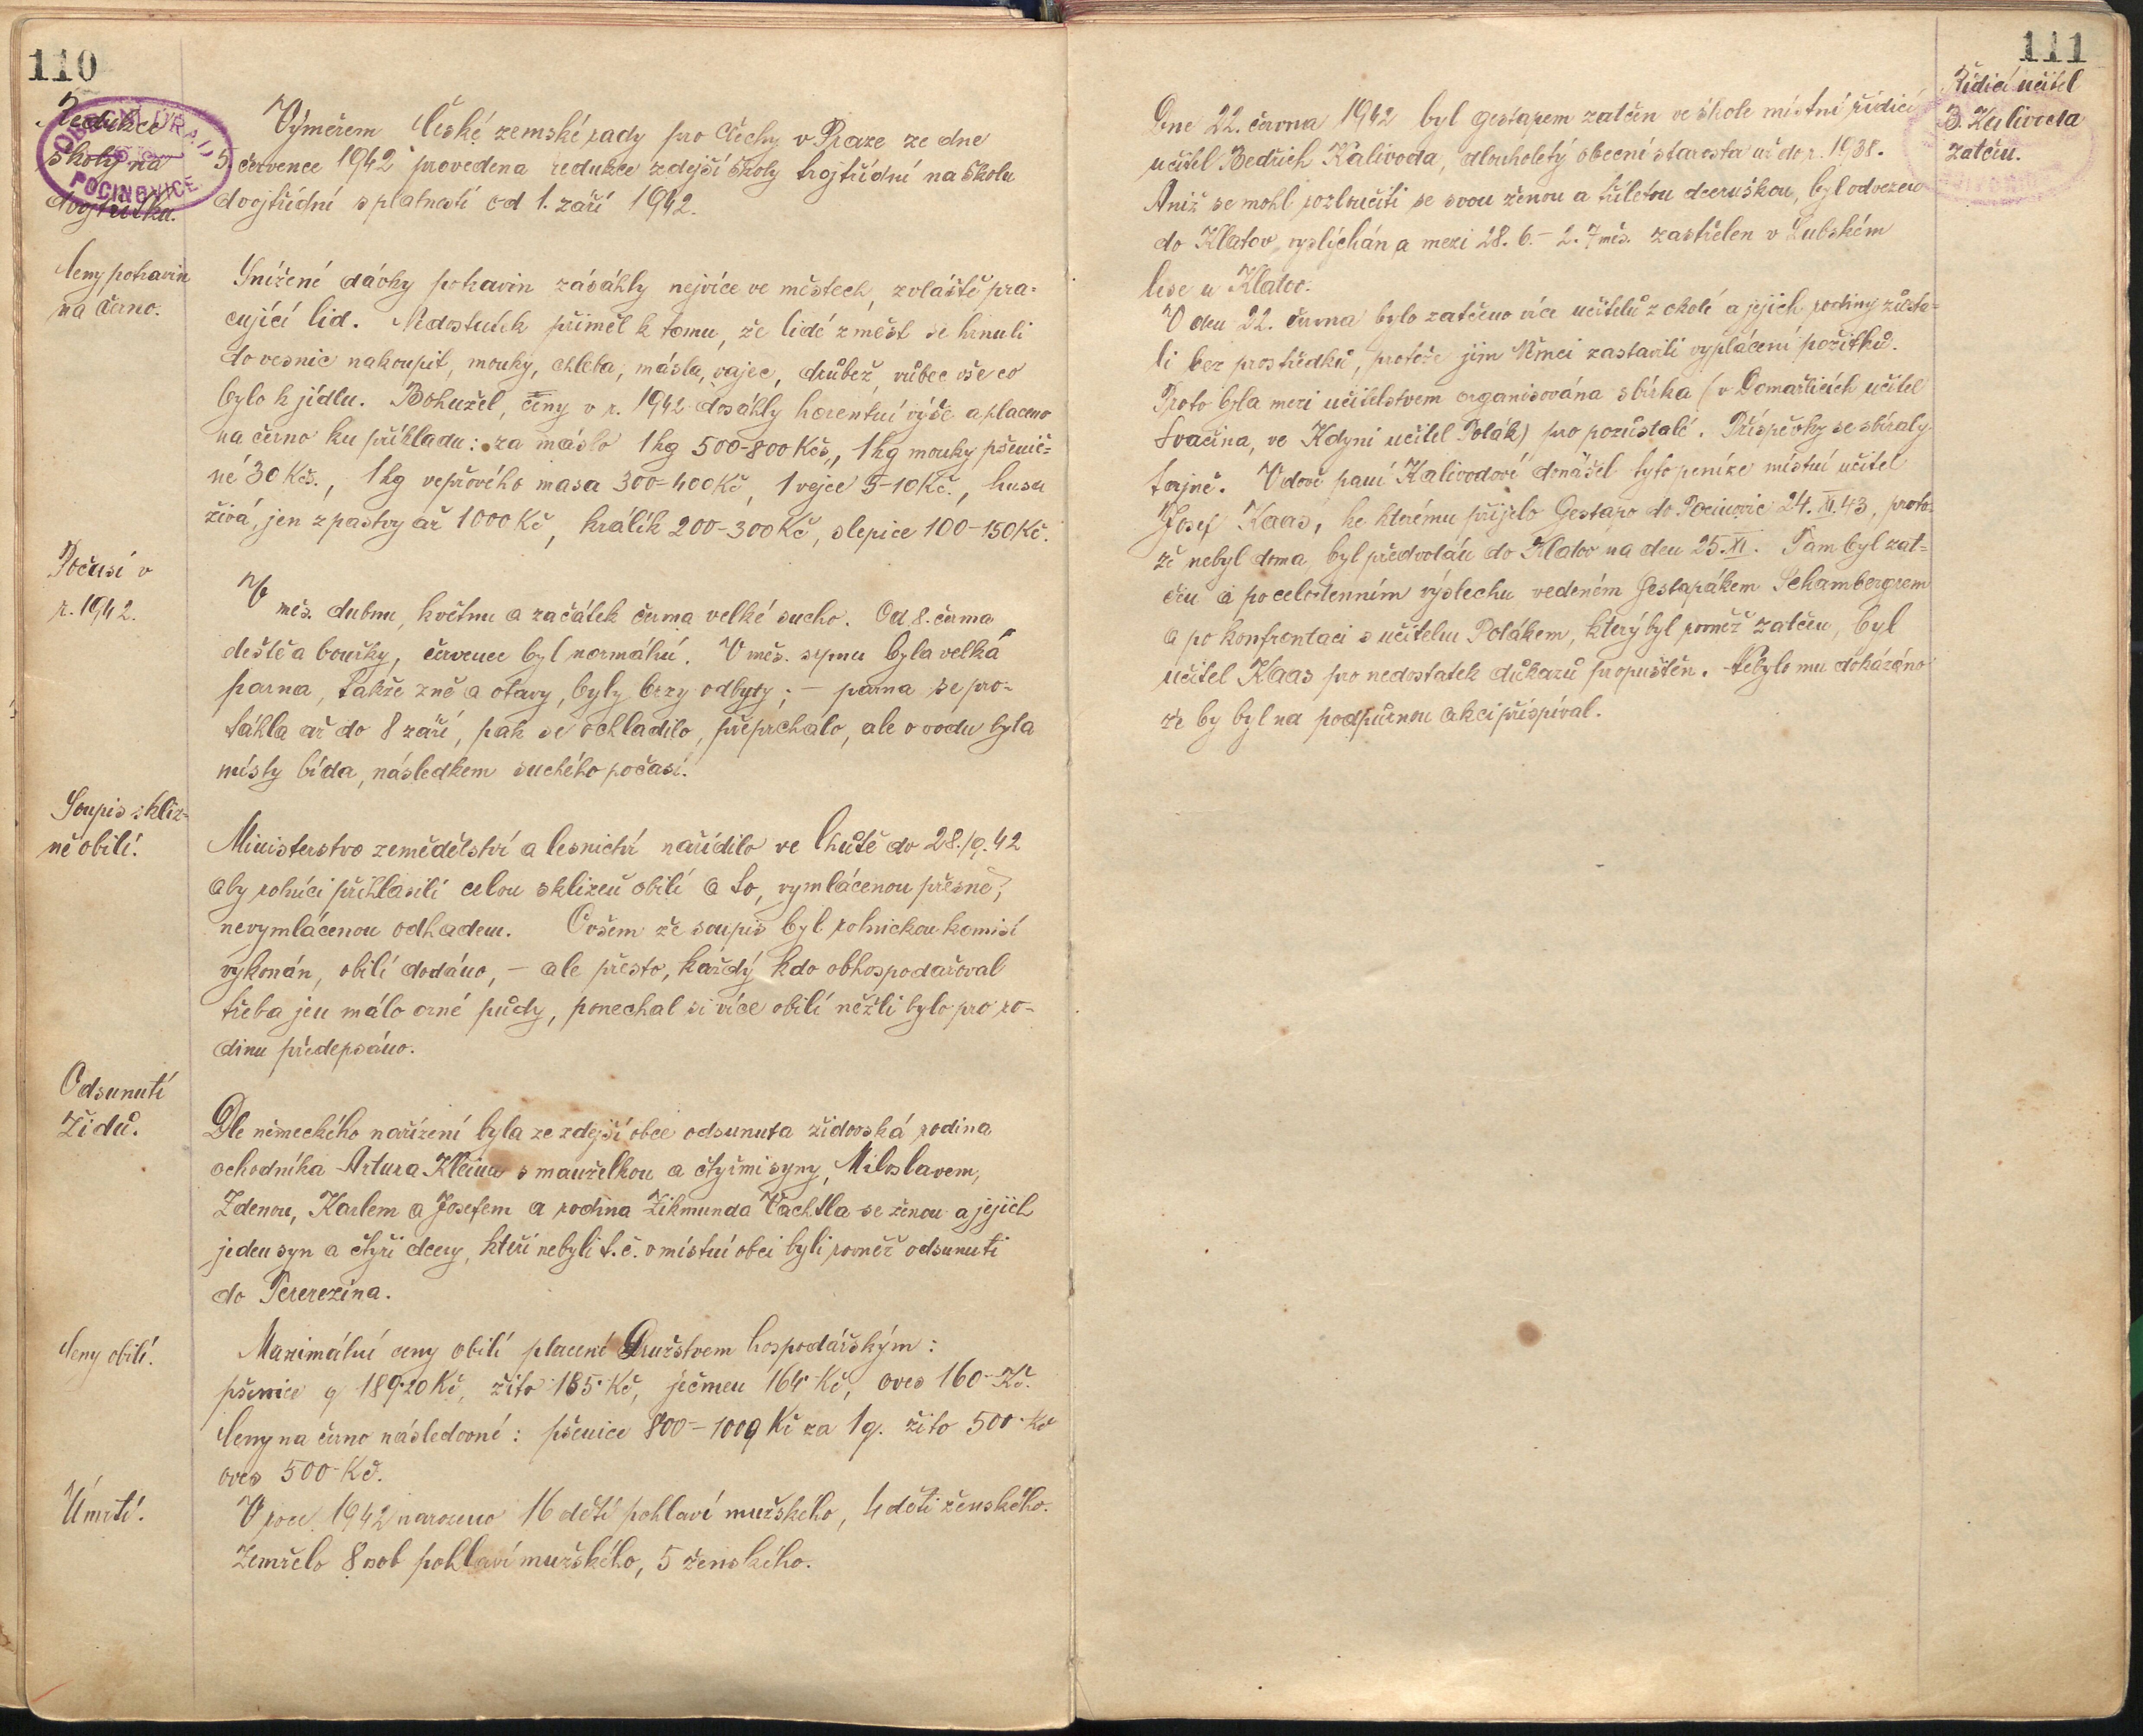 110
Redukce
školy na
dvojtřídku.
OBECNÍ ÚŘAD
POCINOVICE
Výměrem České zemské rady pro Čechy v Praze ze dne
5 července 1942 provedena redukce zdejší školy trojtřídní na školu
dvojtřídní s platností od 1. září 1942.
Ceny potravin
na černo.
Snížené dávky potravin zásáhly nejvíce ve městech, zvláště pra-
cující lid. Nedostatek přiměl k tomu, že lidé z měst se hrnuli
do vesnic nakoupit, mouky, chleba, másla, vajec, drůbež, vůbec vše co
bylo k jídlu. Bohužel, ceny v r. 1942 dosáhly horentní výše a placeno
na černo ku příkladu: za máslo 1 kg 500-800 Kčs, 1 kg mouky pšenič-
né 30 Kčs., 1 kg vepřového masa 300-400 Kč, 1 vejce 5-10 Kč., husa
živá, jen z pastvy až 1000 Kč, králík 200-300 Kč, slepice 100-150 Kč.
Počasí v
r. 1942.
V měs. dubnu, květnu a začátek června velké sucho. Od 8. června
deště a bouřky, červenec byl normální. V měs. srpnu byla velká
parna, takže žně a otavy, byly brzy odbyty; - parna se pro-
táhla až do 8 září, pak se ochladilo, přeprchalo, ale o vodu byla
místy bída, následkem suchého počasí.
Soupis skliz-
ně obilí.
Ministerstvo zemědělství a lesnictví nařídilo ve lhůtě do 28./9. 42
aby rolníci přihlásili celou sklizeň obilí a to, vymlácenou přesně,
nevymlácenou odhadem. Ovšem že soupis byl rolnickou komisí
vykonán, obilí dodáno, - ale přesto, každý kdo obhospodařoval
třeba jen málo orné půdy, ponechal si více obilí nežli bylo pro ro-
dinu předepsáno.
Odsunutí
Židů.
Dle německého nařízení byla ze zdejší obce odsunuta židovská rodina
ochodníka Artura Kleina s manželkou a čtyřmi syny, Miloslavem,
Zdenou, Karlem a Josefem a rodina Zikmunda Vachtla se ženou a jejich
jeden syn a čtyři dcery, kteří nebyli t. č. v místní obci byli rovněž odsunuti
do Tererezína.
Ceny obilí.
Maximální ceny obilí placené Družstvem hospodářským:
pšenice q 189·20 Kč, žito 185· Kč, ječmen 164· Kč, oves 160· Kč.
Ceny na černo následovné: pšenice 800-1000 Kč za 1 q. žito 500· Kč
oves 500· Kč.
Úmrtí.
V roce 1942 narozeno 16 dětí pohlaví mužského, 4 děti ženského.
Zemřelo 8 osob pohlaví mužského, 5 ženského.
111
Řídící učitel
B. Kalivoda
zatčen.
Dne 22. června 1942 byl gestapem zatčen ve škole místní řídící
učitel Bedřich Kalivoda, dlouholetý obecní starosta až do r. 1938.
Aniž se mohl rozloučiti se svou ženou a tříletou dceruškou, byl odvezen
do Klatov, vyslýchán a mezi 28. 6. - 2. 7 měs. zastřelen v Lubském
lese u Klatov.
V den 22. června bylo zatčeno více učitelů z okolí a jejich rodiny zůsta-
li bez prostředků, protože jim Němci zastavili vyplácení požitků.
Proto byla mezi učitelstvem organisována sbírka (v Domažlicích učitel
Svačina, ve Kdyni učitel Polák) pro pozůstalé. Příspěvky se sbíraly
tajně. Vdově paní Kalivodové donášel tyto peníze místní učitel
Josef Kaas, ke kterému přijelo Gestapo do Pocinovic 24. XI. 43, proto-
že nebyl doma, byl předvolán do Klatov na den 25. XI. Tam byl zat-
čen a po celodenním výslechu vedeném Gestapákem Schambergrem
a po konfrontaci s učitelem Polákem, který byl rovněž zatčen, byl
učitel Kaas pro nedostatek důkazů propuštěn. Nebylo mu dokázáno
že by byl na podpůrnou akci přispíval.